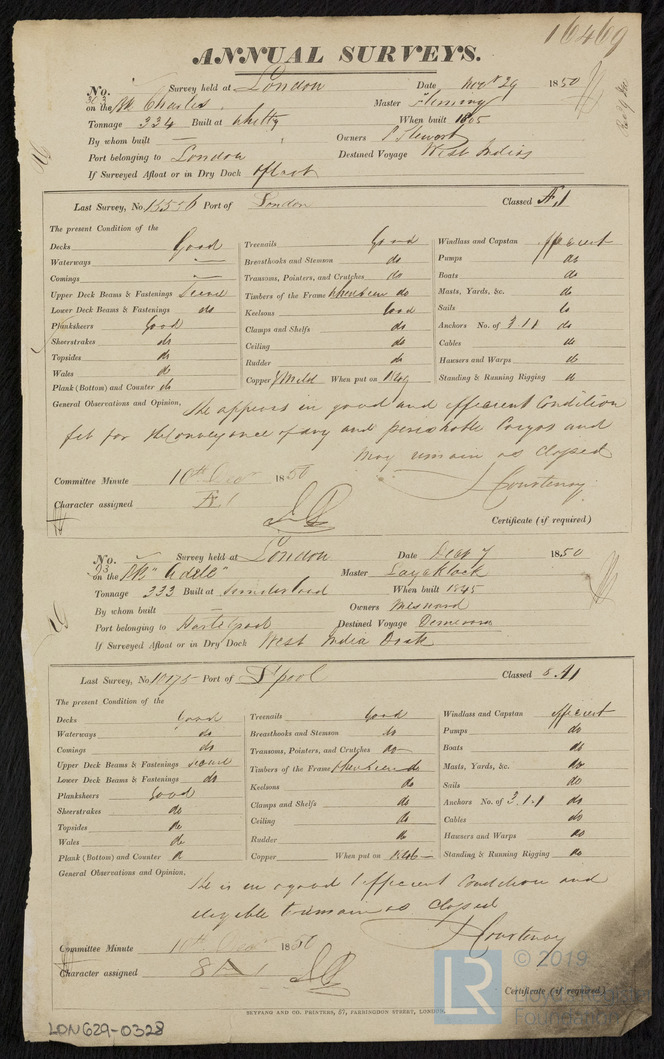 16469
ANNUAL SURVEYS.
No. Survey held at London Date Novr 29 1850
on the Bk Charles Master Fleming
Tonnage 334 Built at Whitby When built 1805
By whom built — Owners P Stewart
Port belonging to London Destined Voyage West Indies
If Surveyed Afloat or in Dry Dock afloat
Last Survey, No. Port of London Classed Æ,1
The present Condition of the
Decks Good Treenails Good Windlass and Capstan efficient
Waterways — Breasthooks and Stemson do Pumps do
Comings — Transoms, Pointers, and Crutches do Boats do
Upper Deck Beams & Fastenings Sound Timbers of the Frame when seen do Masts, Yards, &c. do
Lower Deck Beams & Fastenings do Keelsons Good Sails do
Planksheers Good Clamps and Shelfs do Anchors No. of 3.1.1 do
Sheerstrakes do Ceiling do Cables do
Topsides do Rudder do Hawsers and Warps do
Wales do Copper When put on Standing & Running Rigging do
Plank (Bottom) and Counter do
General Observations and Opinion, She appears in good and efficient Condition
fit for the Conveyance of dry and perishable Cargos and
May remain as Classed
Committee Minute 10th Decr 1850 J Courtenay
Character assigned Æ 1
Certificate (if required)
No. Survey held at London Date Decr 7 1850
on the Bk "Adele" Master Layeklock
Tonnage 333 Built at Sunderland When built 1845
By whom built — Owners Mesnard
Port belonging to Hartlepool Destined Voyage Demerara
If Surveyed Afloat or in Dry Dock West India Dock
Last Survey, No. 10175 Port of L'pool Classed 8 A1
The present Condition of the
Decks Good Treenails Good Windlass and Capstan efficient
Waterways do Breasthooks and Stemson do Pumps do
Comings do Transoms, Pointers, and Crutches do Boats do
Upper Deck Beams & Fastenings Sound Timbers of the Frame when seen do Masts, Yards, &c. do
Lower Deck Beams & Fastenings do Keelsons do Sails do
Planksheers Good Clamps and Shelfs do Anchors No. of 3.1.1 do
Sheerstrakes do Ceiling do Cables do
Topsides do Rudder do Hawsers and Warps do
Wales do Copper When put on Standing & Running Rigging do
Plank (Bottom) and Counter do
General Observations and Opinion,
She is in a good & efficient Condition and
eligible to remain as Classed
J Courtenay
Committee Minute 10th Decr 1850
Character assigned 8 A 1
Certificate (if required)
SEYFANG AND CO. PRINTERS, 57, FARRINGDON STREET, LONDON.
LON629-0328
LR © 2019
Foundation